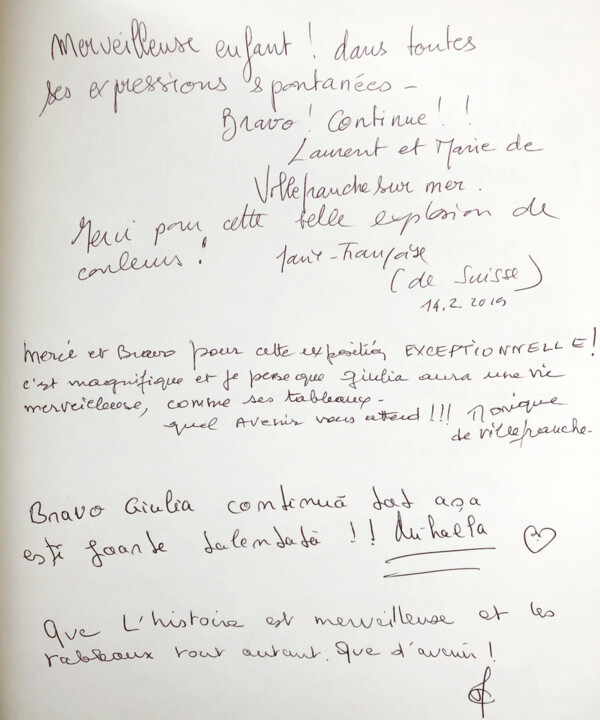 Merveilleuse enfant ! dans toutes
ses expressions spontanées -
Bravo ! Continue ! !
Laurent et Marie de
Villefranche sur mer.
Merci pour cette belle explosion de
couleurs !
Marie-Françoise
(de Suisse)
14.2.2019
Merci et Bravo pour cette exposition EXCEPTIONNELLE !
c'est magnifique et je pense que Giulia aura une vie
merveilleuse, comme ses tableaux -
quel Avenir vous attend !!! Monique
de villefranche.
Bravo Giulia continuă tot aşa
eşti foarte talentată !! Mihaela
Que L'histoire est merveilleuse et les
tableaux tout autant. Que d'avenir !